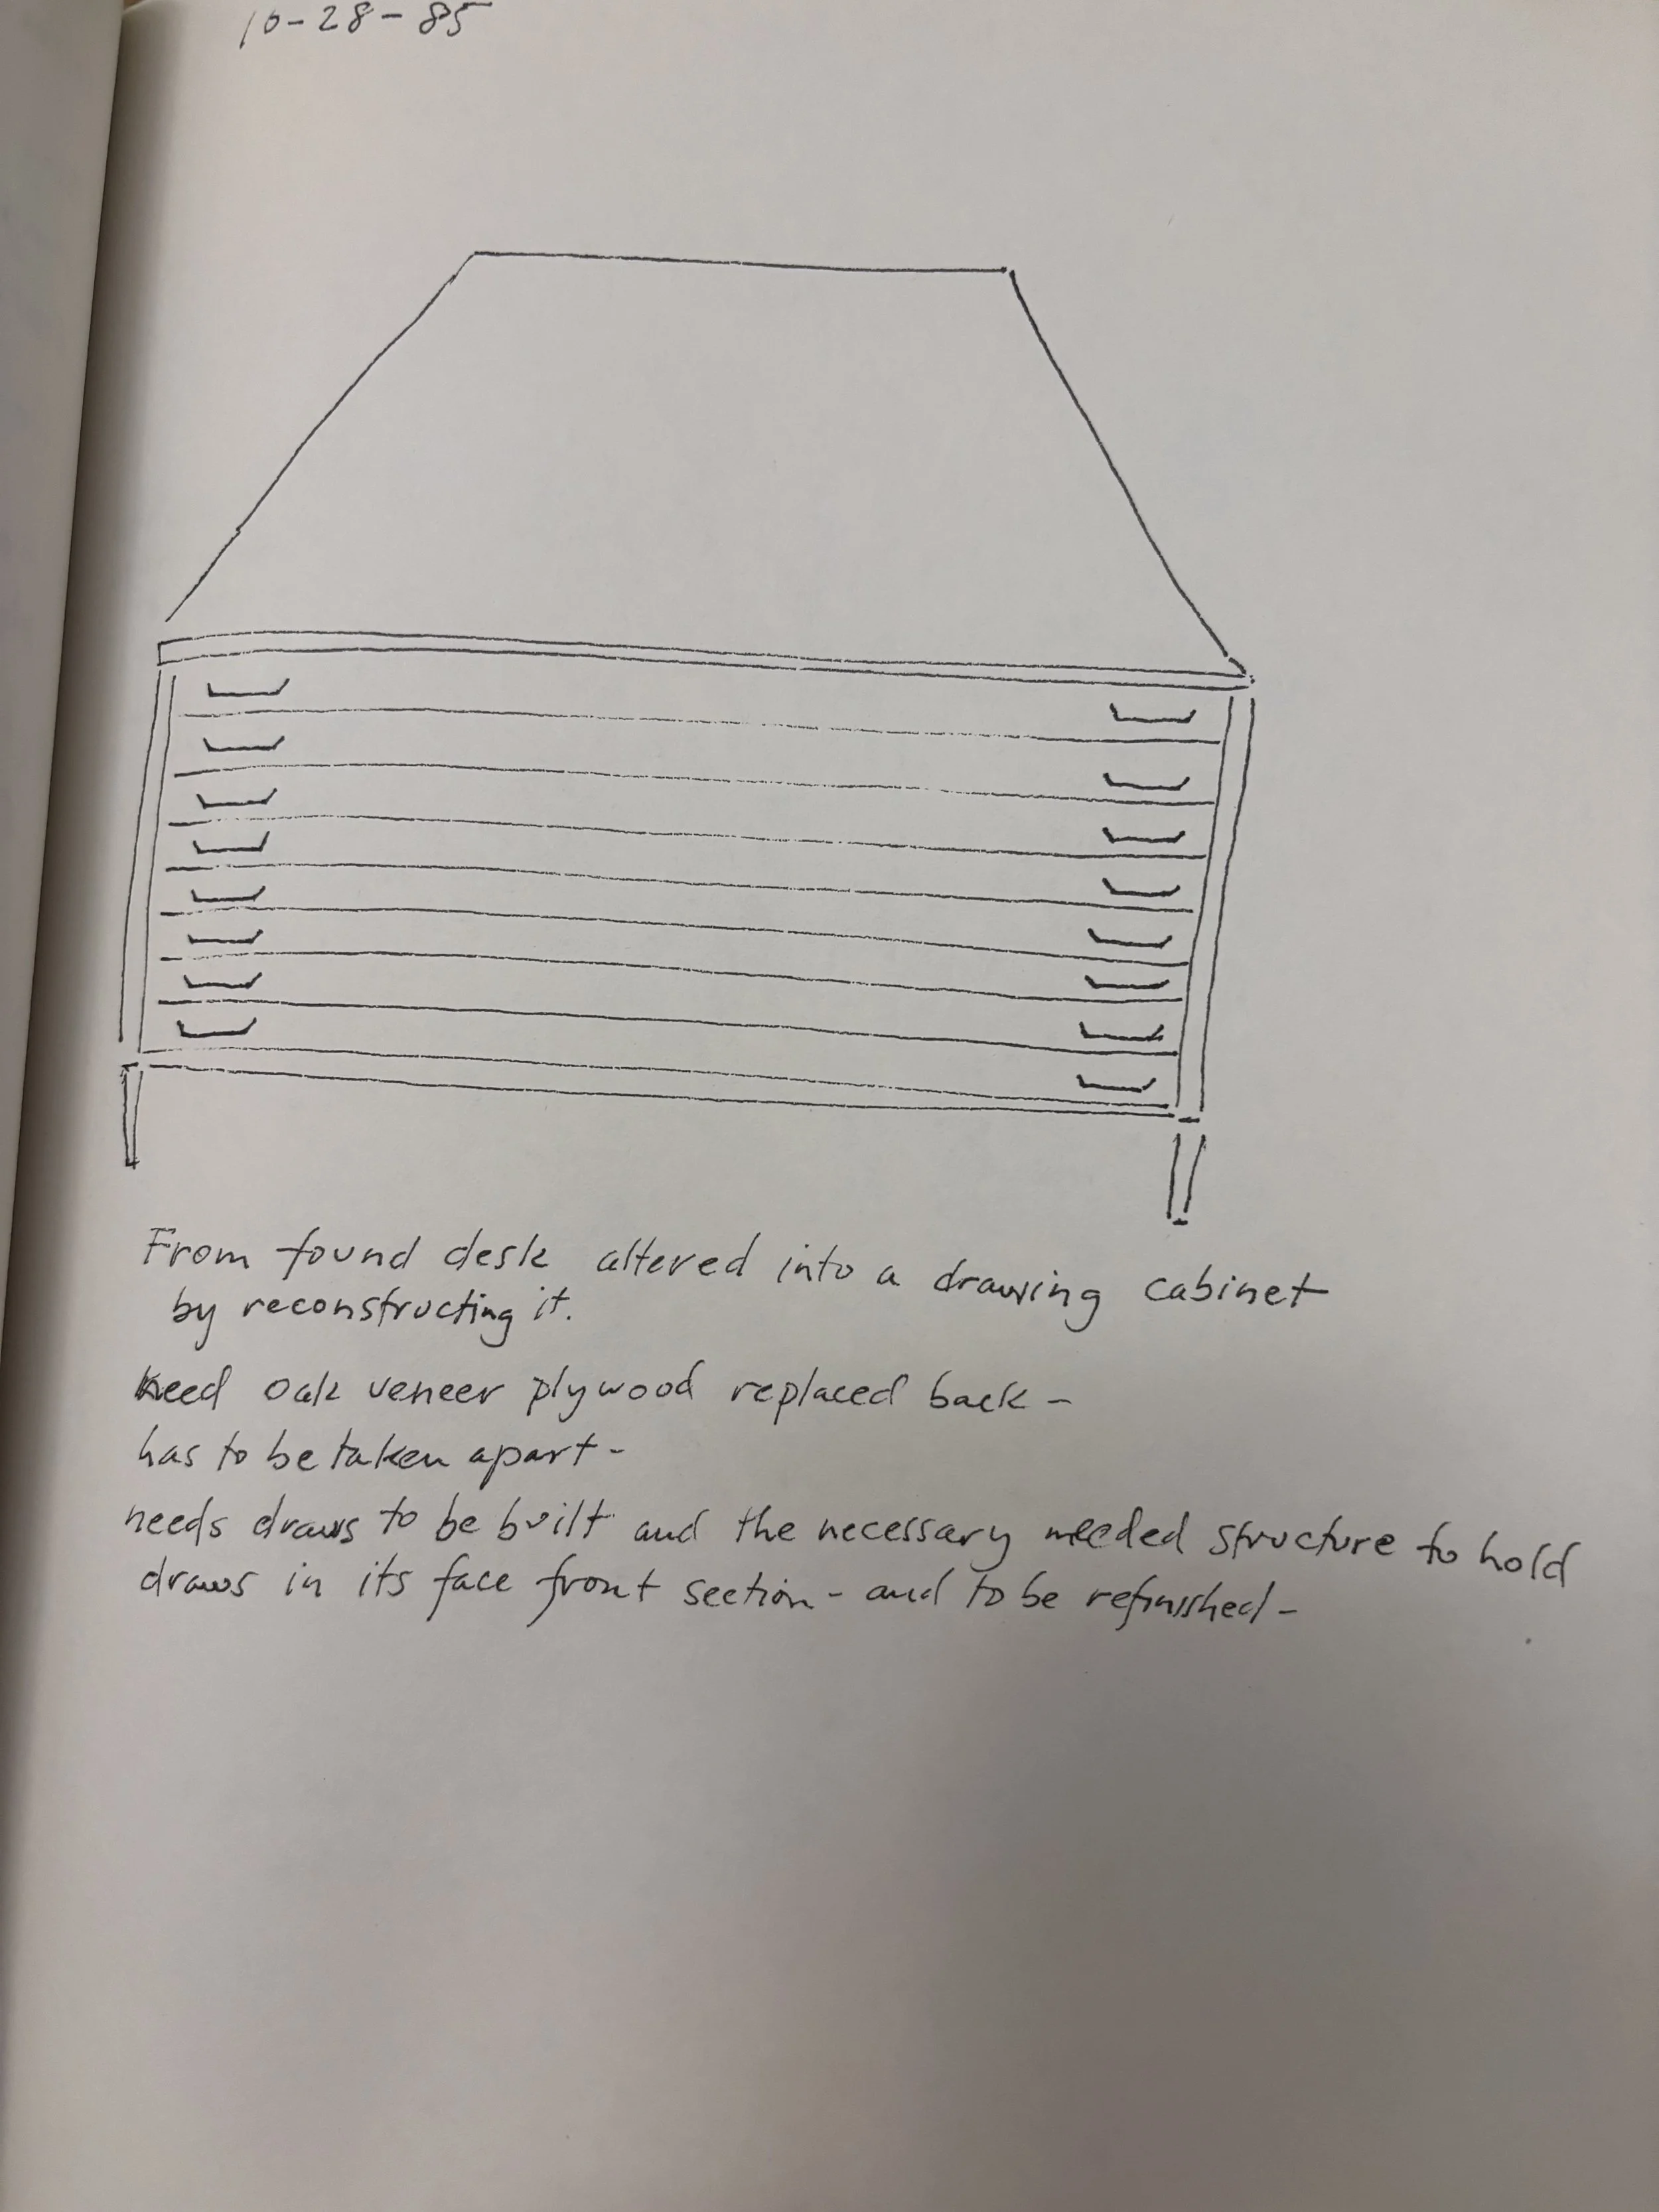 10-28-85
From found desk altered into a drawing cabinet
by reconstructing it.
Need oak veneer plywood replaced back -
has to be taken apart -
needs draws to be built and the necessary needed structure to hold
draws in its face front section - and to be refinished -